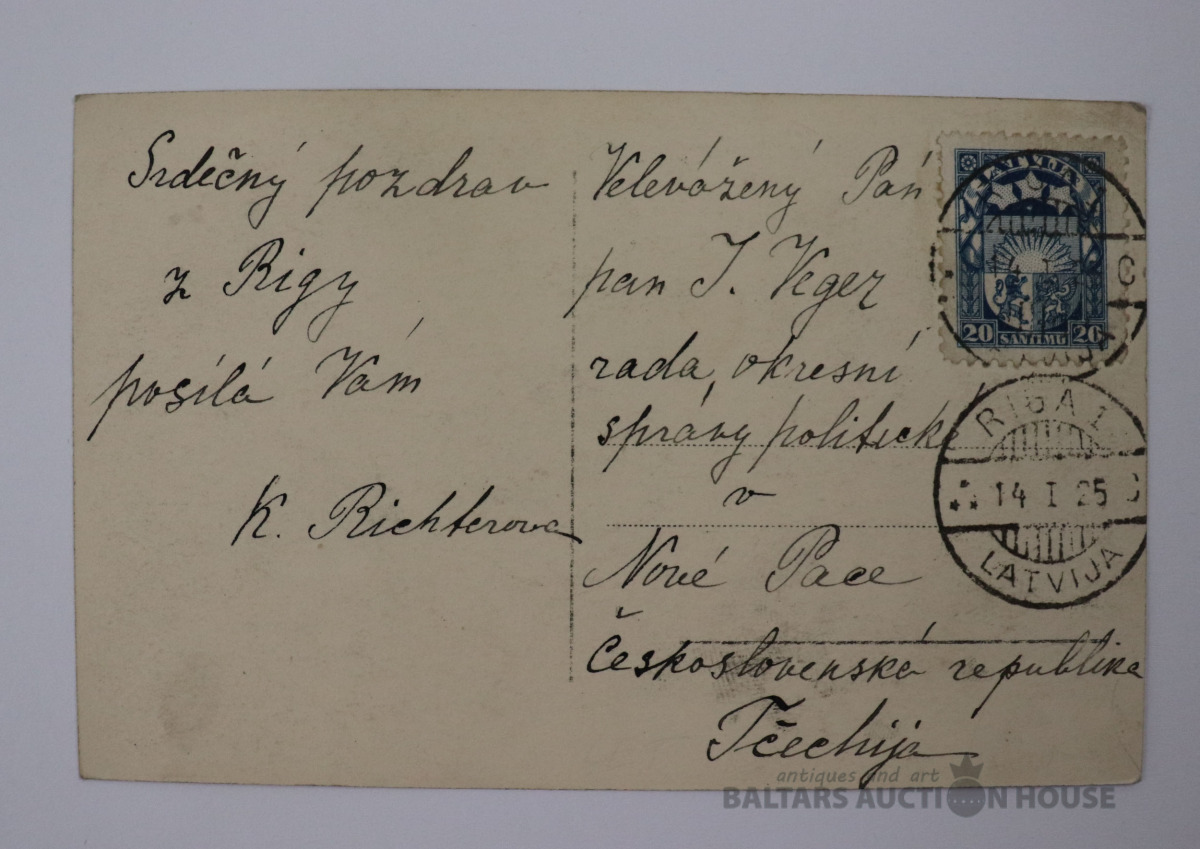 Srdečný pozdrav
z Rigy
posílá Vám
K. Richterova
Velevážený Pán
pan J. Veger
rada, okresní
správy politické
v
Nové Pace
Československá republika
Tčechija
LATVIJA
20 SANTIMU 20
RIGA 1
14 I 25 C
LATVIJA
antiques and art
BALTARS AUCTION HOUSE